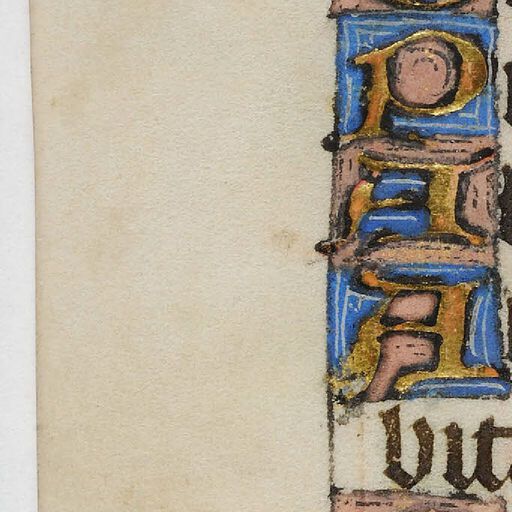 P
A
A
vit